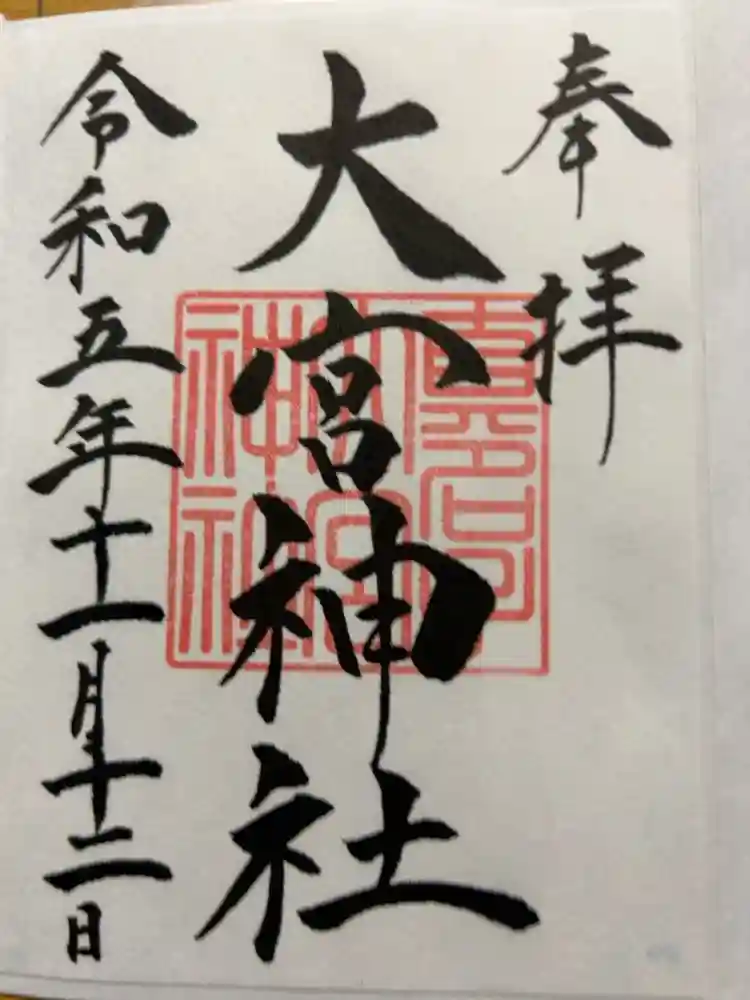 奉拝
大宮神社
令和五年十一月十二日